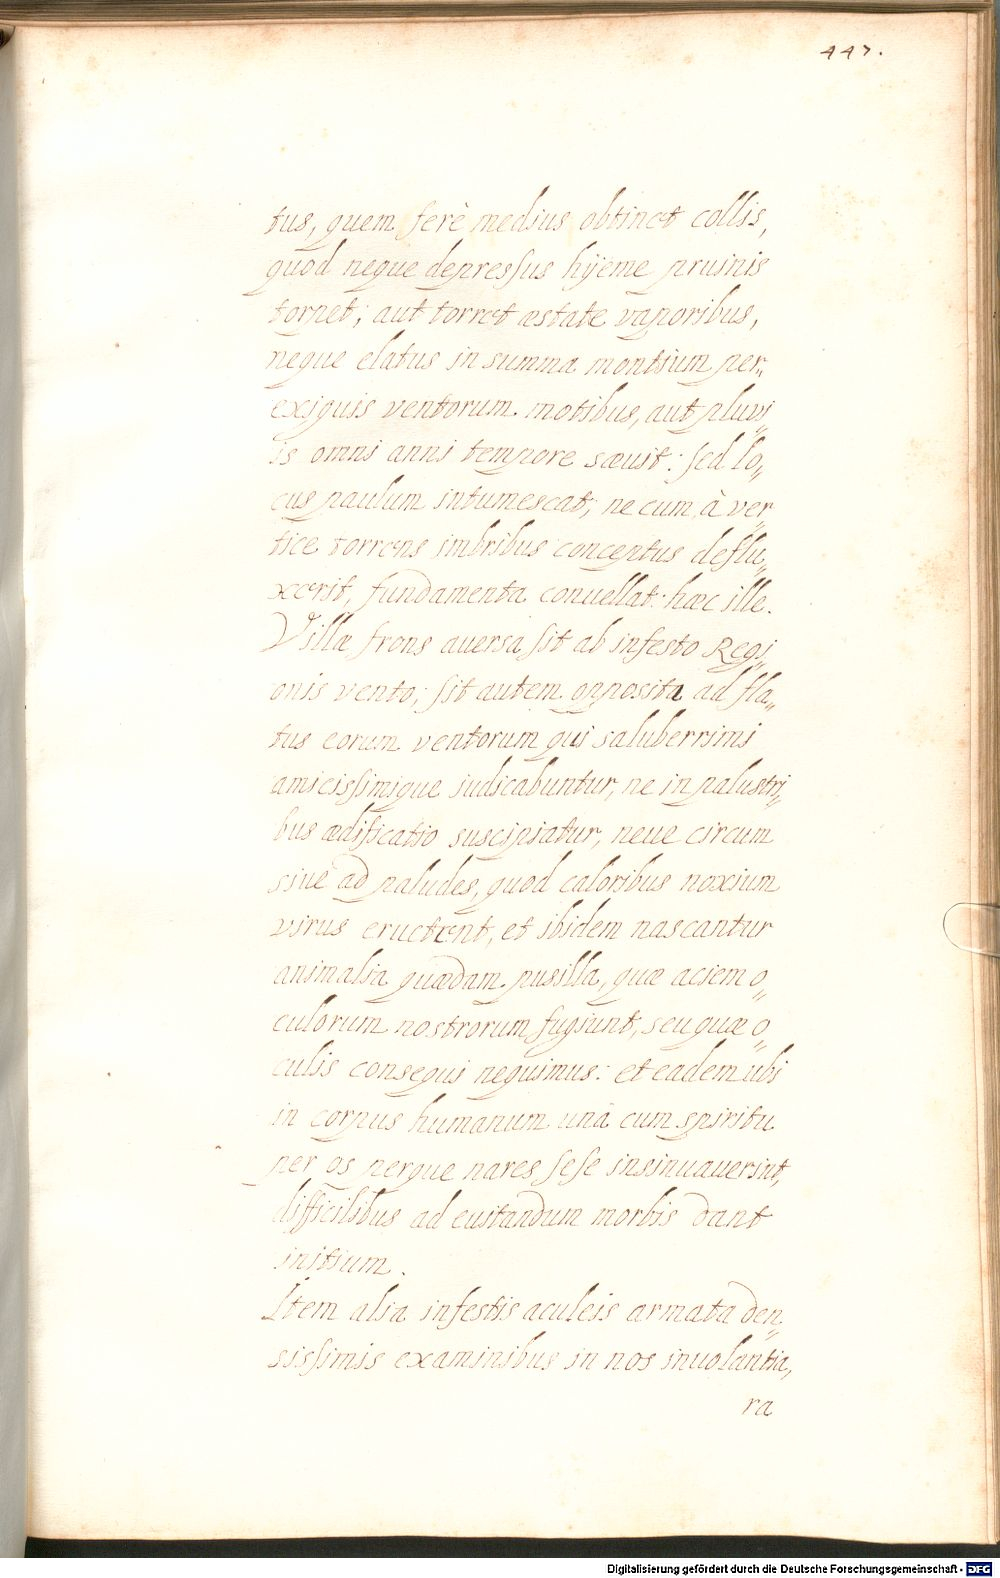 447.
tus, quem ferè medius obtinet collis,
quod neque depressus hyeme pruinis
torpet; aut torret æstate vaporibus,
neque elatus in summa montium per„
exiguis ventorum motibus, aut pluvi„
is omni anni tempore sæuit: sed lo„
cus paulum intumescat; ne cum à ver„
tice torrens imbribus conceptus deflu„
xerit, fundamenta conuellat: hæc ille.
Villæ frons auersa sit ab infesto Regi„
onis vento; sit autem opposita ad fla„
tus eorum ventorum qui saluberrimi
amicissimique iudicabuntur, ne in palustri„
bus ædificatio suscipiatur, neue circum
siue ad paludes, quod caloribus noxium
virus eructent, et ibidem nascantur
animalia quædam pusilla, quæ aciem o„
culorum nostrorum fugiunt, seu quæ o„
culis consequi nequimus: et eadem ubi
in corpus humanum unà cum spiritu
per os perque nares sese insinuauerint,
difficilibus ad euitandum morbis dant
initium.
Item alia infestis aculeis armata den„
sissimis examinibus in nos inuolantia,
ra
Digitalisierung gefördert durch die Deutsche Forschungsgemeinschaft - DFG